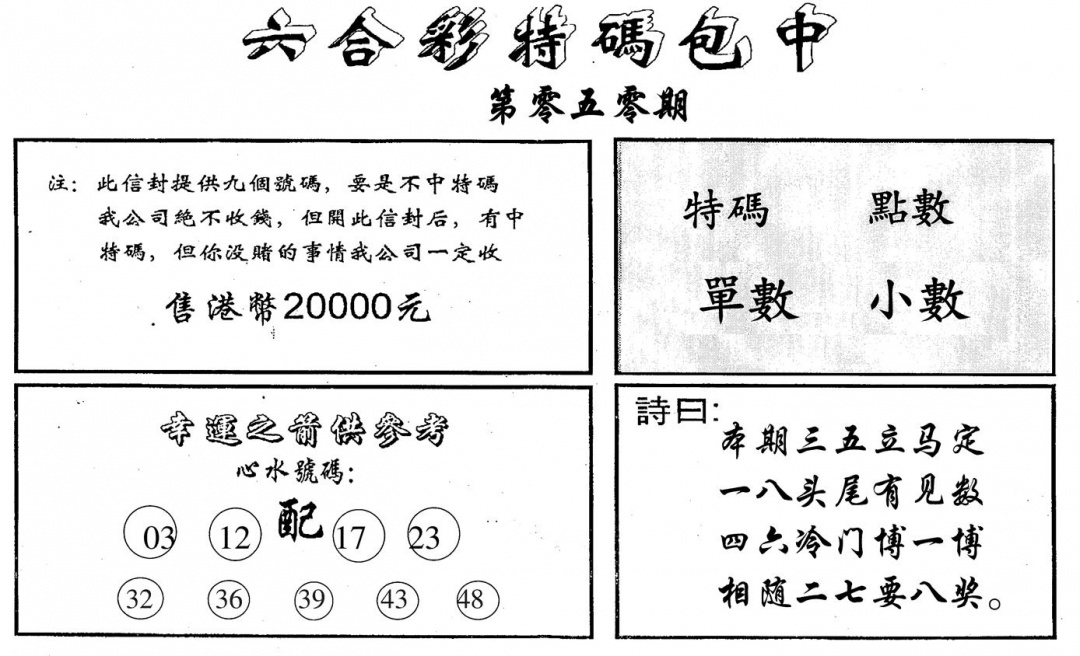 六合彩特碼包中
第零五零期
注：此信封提供九個號碼，要是不中特碼
我公司絕不收錢，但開此信封后，有中
特碼，但你没賭的事情我公司一定收
售港幣20000元
特碼 點數
單數 小數
幸運之箭供參考
心水號碼：
配
03 12 17 23
32 36 39 43 48
詩曰：
本期三五立马定
一八头尾有见数
四六冷门博一博
相随二七要八奖。